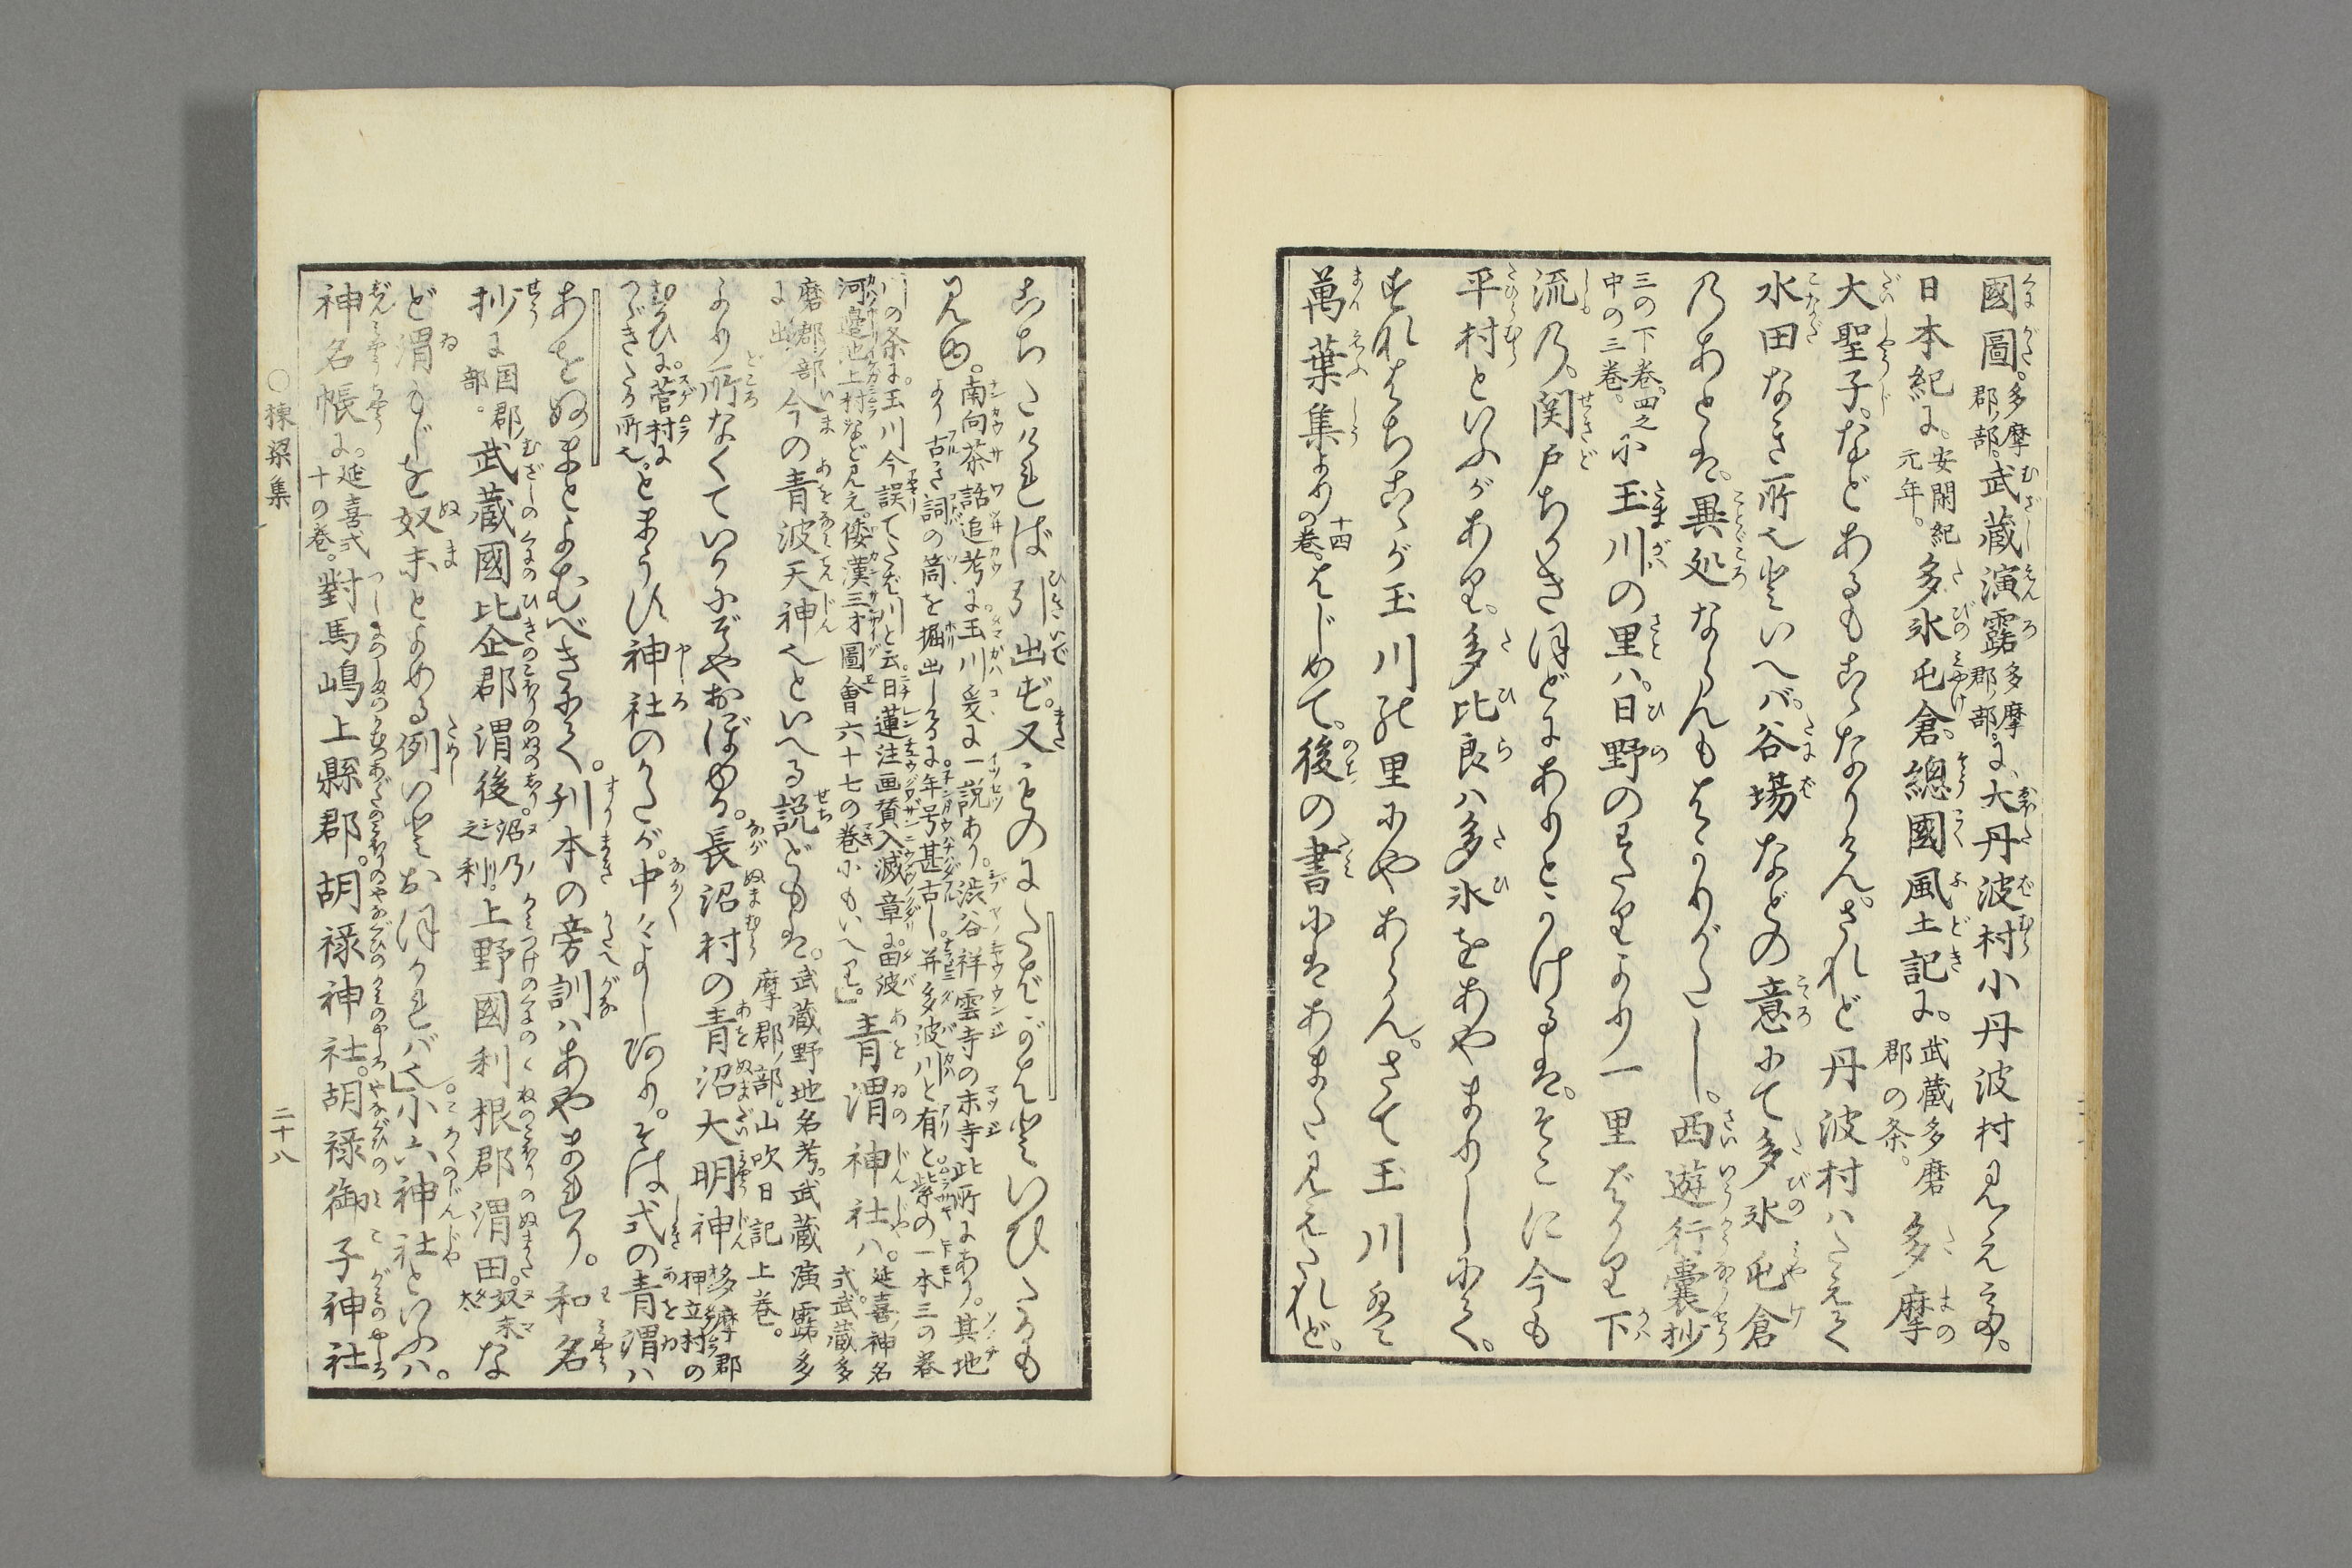 國圖。多摩郡ノ部。武蔵演露多摩郡ノ部。に、大丹波村小丹波村見えたり。
日本紀に。安閑紀元年。多氷屯倉。總國風土記に。武蔵多磨郡の条。多摩
大聖子。などあるもこゝなりけん。されど丹波村ハたえて
水田なき所也といへバ。谷場などの意にて多氷屯倉
乃あとは。異処ならんもはかりがたし。西遊行囊抄
三の下巻。四之中の三巻。に玉川の里ハ。日野のわたりより一里ばかり下
流乃。関戸ちかきほどにありとかけるは。そこに今も
平村といふがあり。多比良ハ多氷をあやまりしにて。
それはちこゝが玉川の里にやあらん。さて玉川は
萬葉集より十四の巻。はじめて。後の書にはあまた見えたれど。
こちたければ引出ず。又ものにたばがはといひたるも
見ゆ。南向茶話追考に。玉川爰に一説あり。渋谷祥雲寺の末寺此所にあり。其地
より古き詞の筒を掘出しゝるに年号甚古し。并多波川と有と。紫の一本三の巻
川の条に。玉川今誤てたば川と云。日蓮注画賛入滅章に。田波
河邉池上村などみえ。倭漢三才圖會六十七の巻にもいへり。」青渭神社ハ。延喜神名式。武蔵多
磨郡ノ部に出今の青波天神也といへる説どもは。武蔵野地名考。武蔵演露多摩郡ノ部。山吹日記上巻。
より所なくていかにぞやおぼゆる。長沼村の青沼大明神多摩郡押立村の
むかひに。菅村につゞきたる所也。とまうす神社のかたが。中々よし阿り。そは式の青渭ハ
あをぬまとよむべきにて。刊本の旁訓ハあやまれり。和名
抄に国郡ノ部。武蔵國比企郡渭後。沼乃之利。上野國利根郡渭田。奴末太な
ど渭もじを奴末とよめる例いとおほかれバ也。」小六神社といふハ。
神名帳に。延喜式十の巻。對馬嶋上縣郡。胡禄神社。胡禄御子神社
○棟梁集
二十八